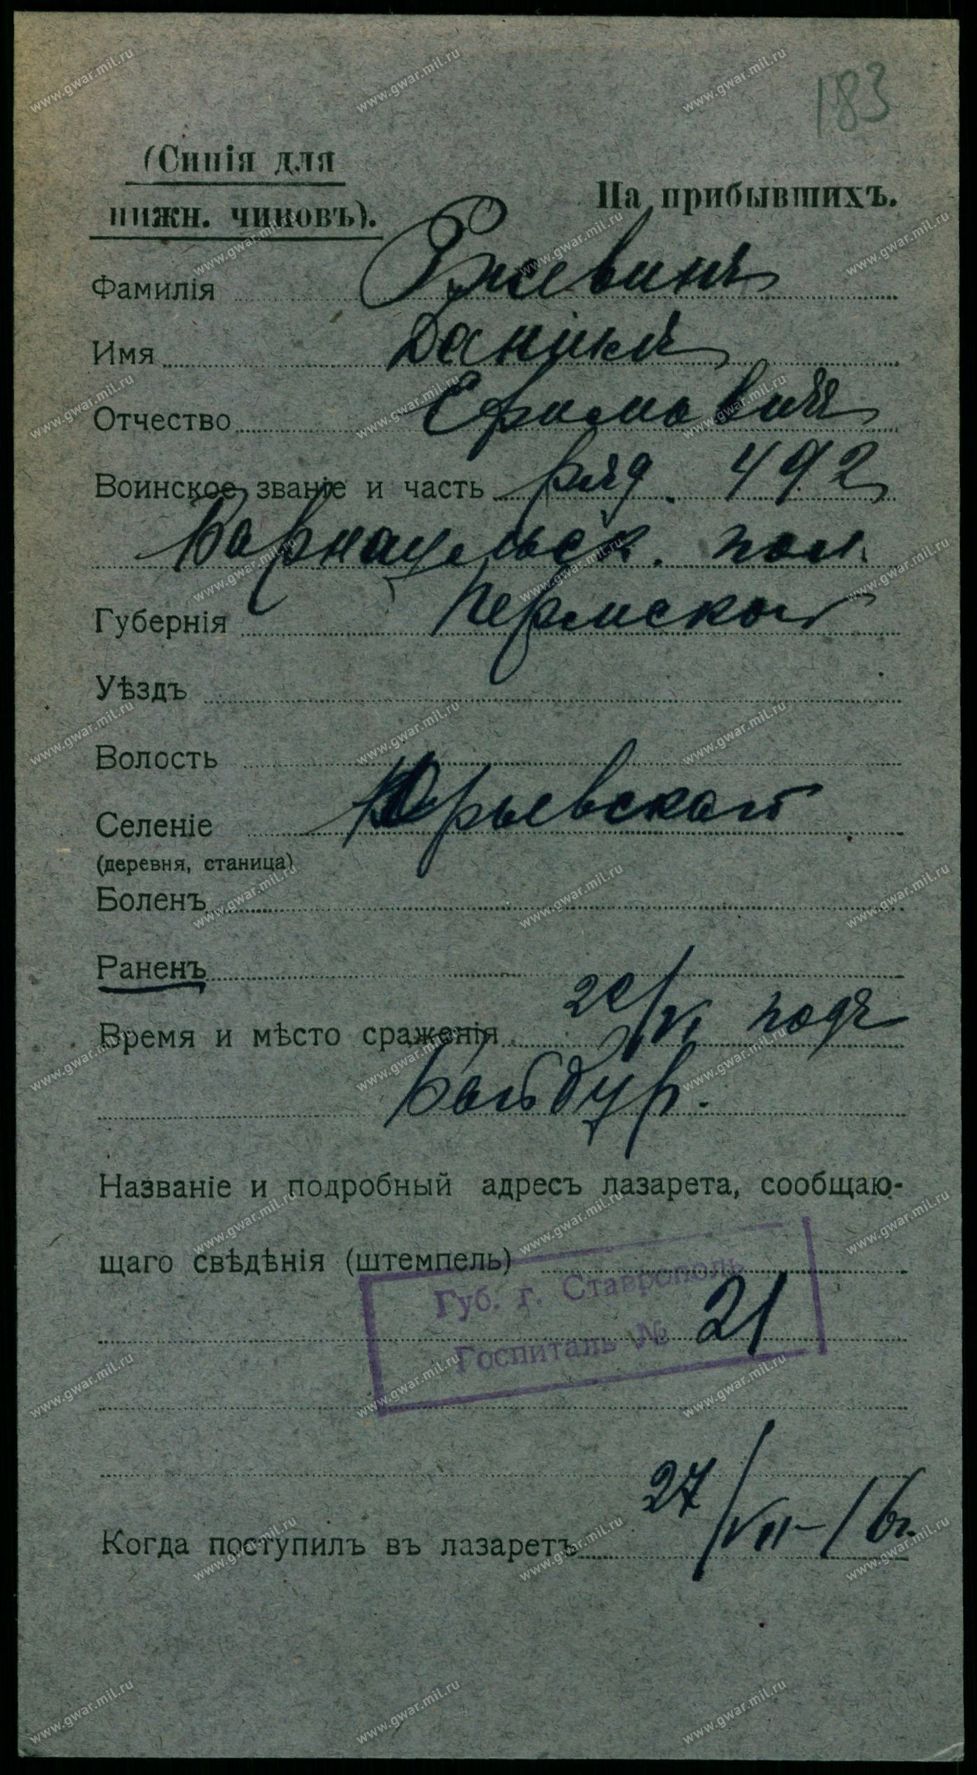 183
(Синія для
нижн. чиновъ).
На прибывшихъ.
Фамилія Ржевинъ
Имя Данiилъ
Отчество Ефимовичъ
Воинское званіе и часть ряд. 492
Барнаульск. пол.
Губернія Пермской
Уѣздъ
Волость
Селеніе Юрьевской
(деревня, станица)
Боленъ
Раненъ
Время и мѣсто сраженія /VI подъ
Названіе и подробный адресъ лазарета, сообщаю-
щаго свѣдѣнія (штемпель)
Губ. г. Ставрополь
Госпиталь № 21
Когда поступилъ въ лазаретъ 27/VII-16г.
www.gwar.mil.ru